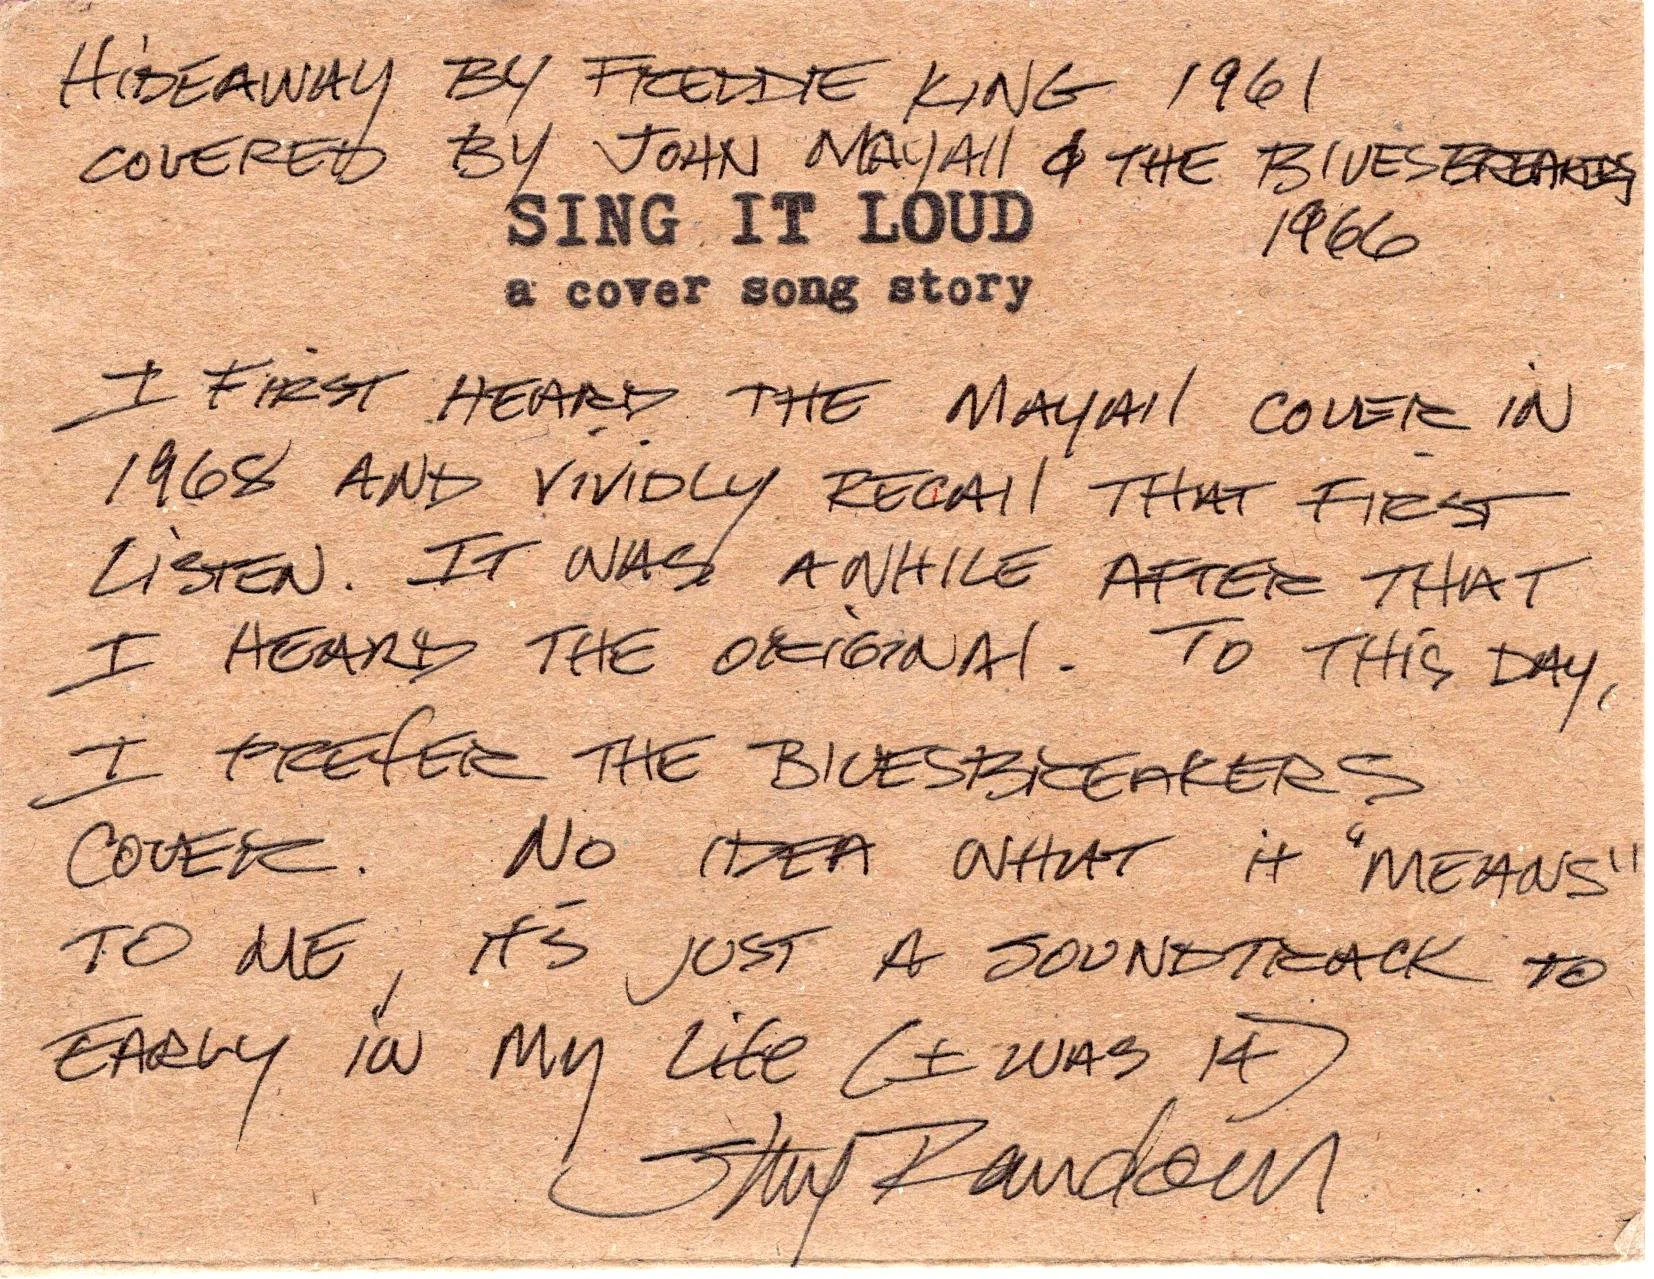 HIDEAWAY BY FREDDIE KING 1961
COVERED BY JOHN MAYAll & THE BlUESBREAKERS
1966
SING IT LOUD
a cover song story
I FIRST HEARD THE MAYAll COVER IN
1968 AND VIVIDLY RECAll THAT FIRST
LISTEN. IT WAS AWHILE AFTER THAT
I HEARD THE ORIGINAl. TO THIS DAY,
I PREfER THE BlUESBREAKERS
COVER. NO IDEA WHAT it "MEANS"
TO ME, it's JUST A SOUNDTRACK TO
EARLY IN MY LIFE (I WAS 14)
Random